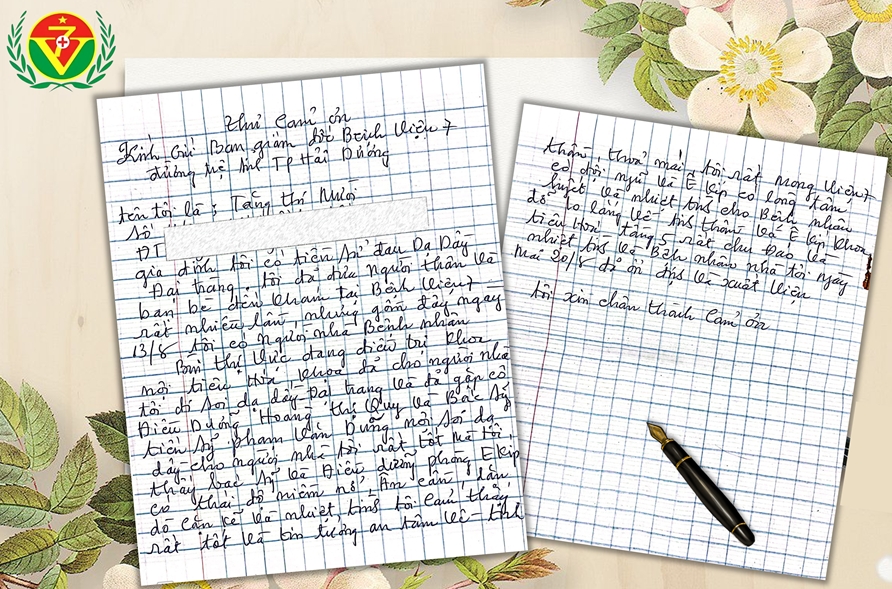 Thư Cảm ơn
Kính Gửi Ban giám đốc Bệnh Viện 7
đường Tuệ Tĩnh TP Hải Dương
tên tôi là : Tăng thị Mười
Số
ĐT
gia đình tôi có tiền sử đau Dạ Dầy
Đại trang, tôi đã đưa người thân và
bạn bè đến khám tại Bệnh Viện 7
rất nhiều lần, nhưng gồm đây ngày
13/8 tôi có người nhà Bệnh nhân
thị Vực đang điều trị khoa
nội tiêu Hoá khoa đã cho người nhà
tôi đi soi dạ dầy - Đại trang và đã gặp cô
Điều Dưỡng Hoàng thị Quy và Bác Sỹ
tiến sỹ Phạm Văn Dũng nội soi dạ
dầy cho người nhà tôi rất tốt mà tôi
thấy bác sỹ và Điều dưỡng phòng Ekíp
có thái độ niềm nở, Ân cần dặn
dò cặn kẽ và nhiệt tình tôi cảm thấy
rất tốt và tin tưởng an tâm về tinh
thần, thoả mái, tôi rất mong Viện 7
có đội ngũ và Ê kíp có lòng tâm
huyết và nhiệt tình cho Bệnh nhân
đỡ lo lắng về tinh thần và Ê kíp khoa
tiêu Hoá tầng 5 rất chu Đáo và
nhiệt tình và Bệnh nhân nhà tôi ngày
mai 20/8 đã ổn định và xuất viện
tôi xin chân thành cảm ơn